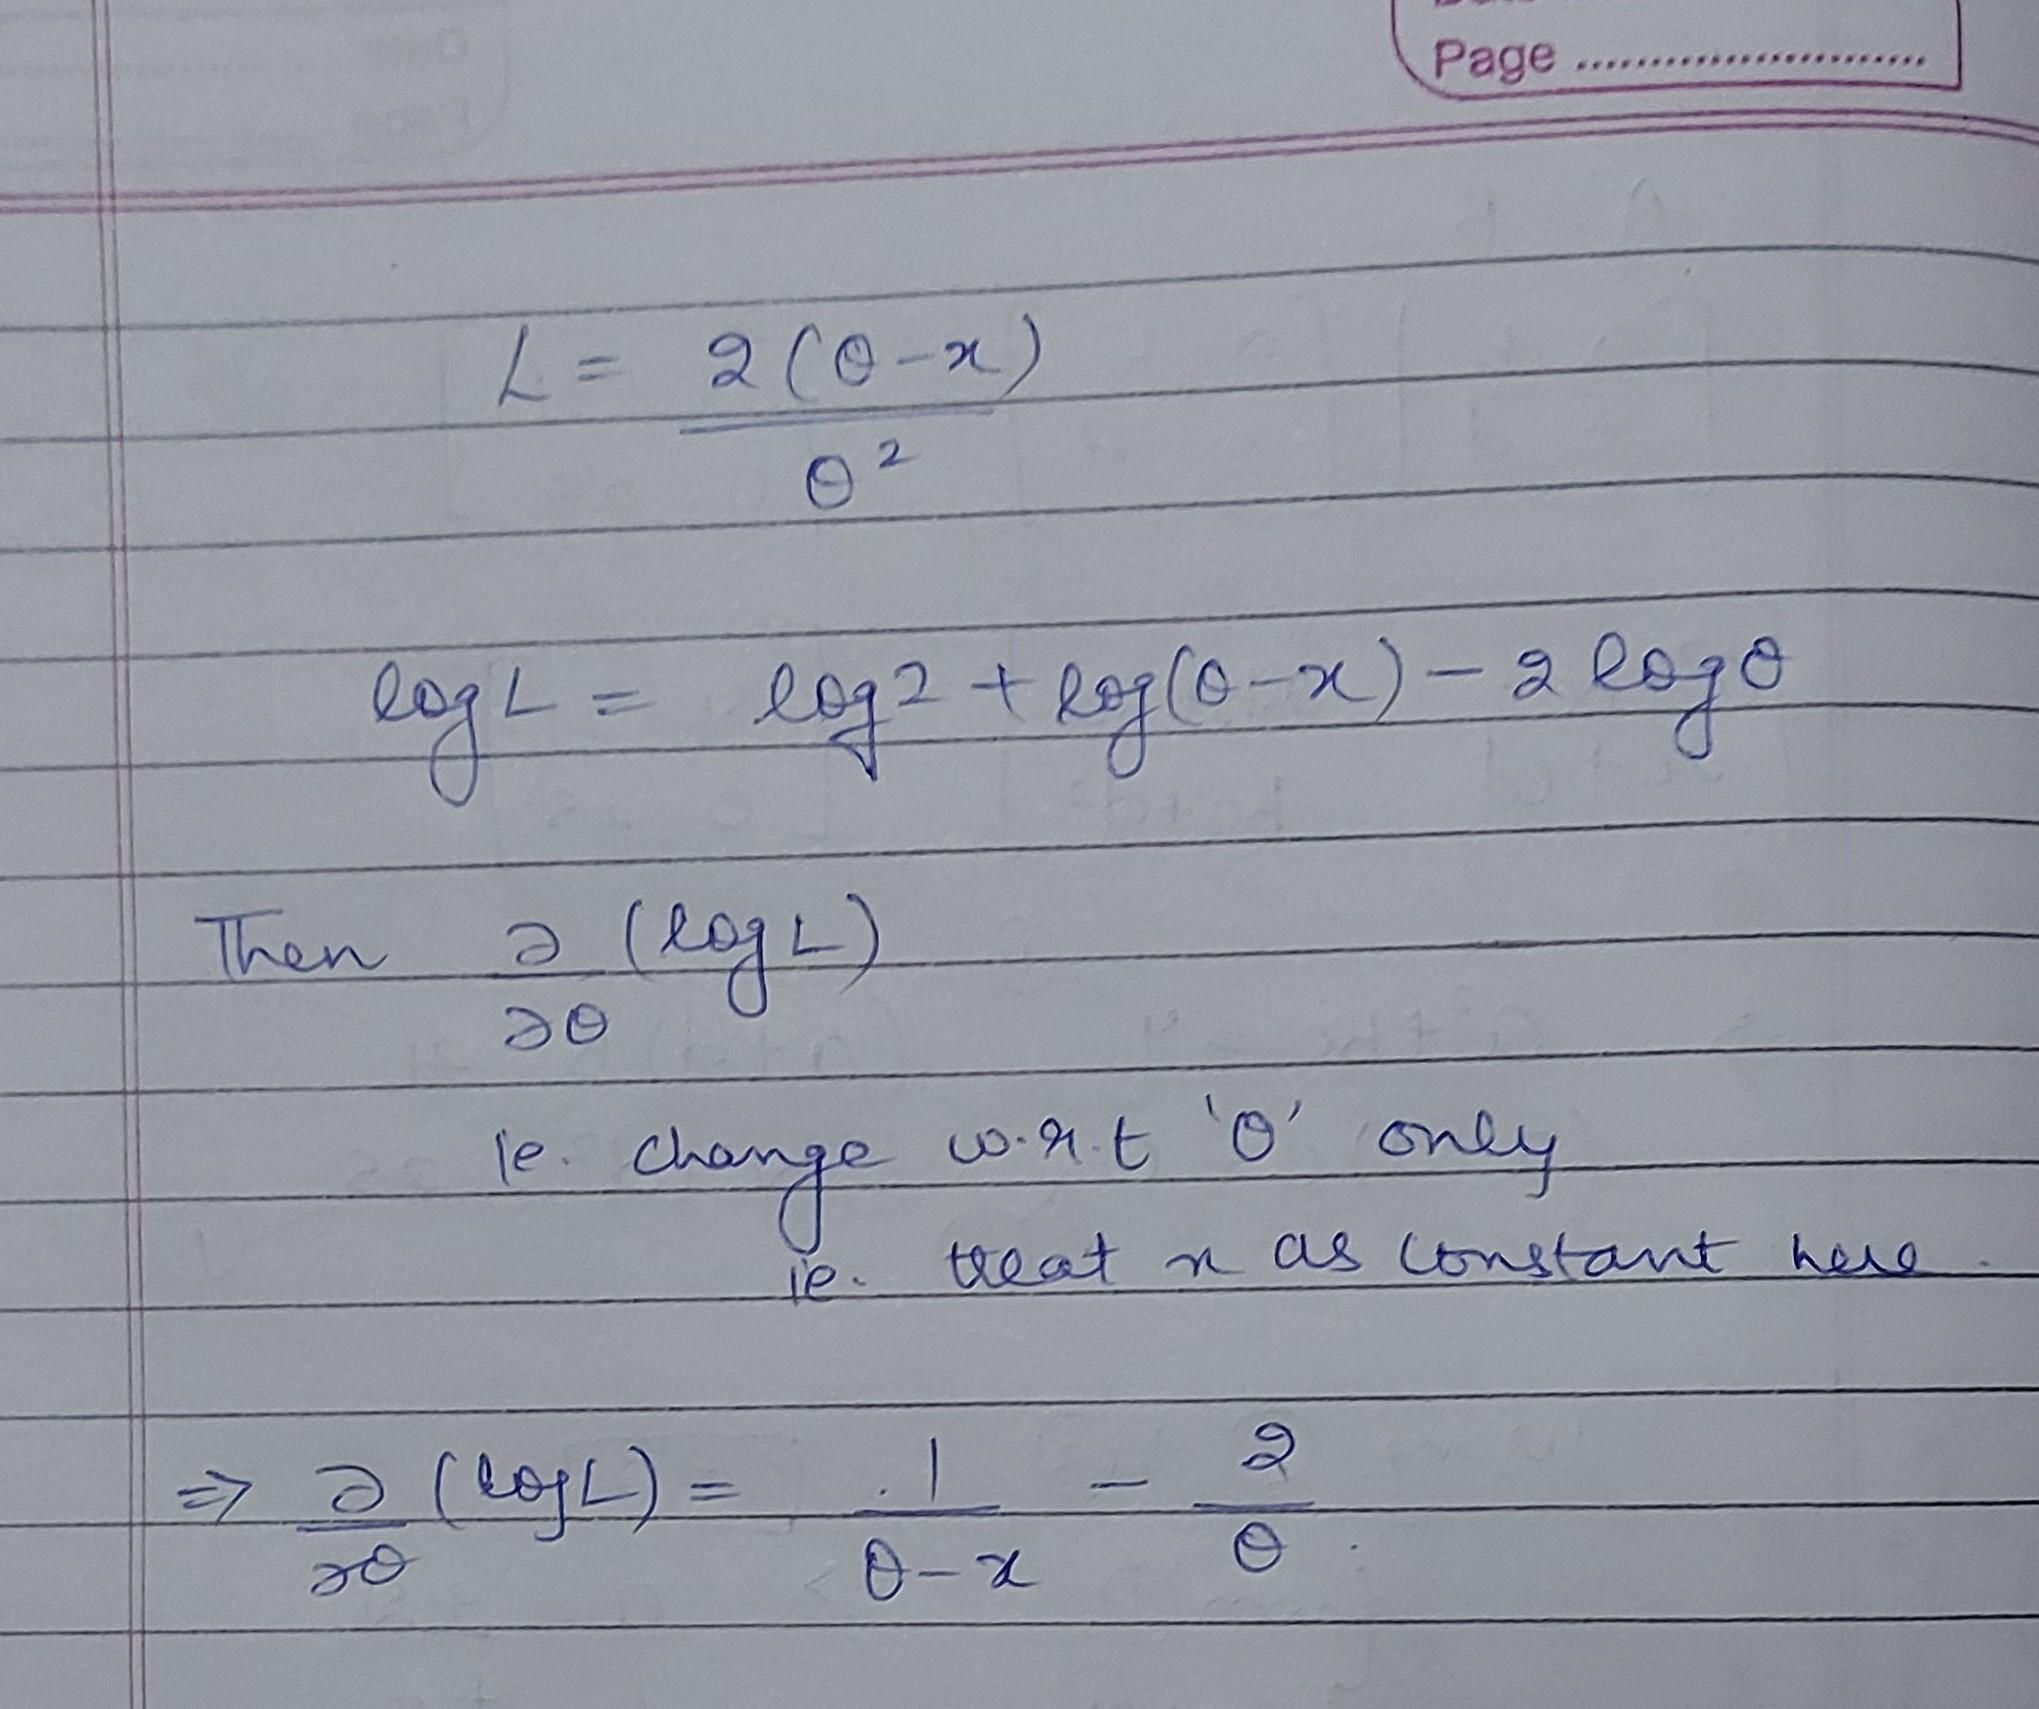 Page ........................
L = 2(θ-x)
θ²
log L = log2 + log(θ-x) - 2 logθ
Then ∂ (log L)
∂θ
ie. change w.r.t 'θ' only
ie. treat x as constant here.
⇒ ∂ (log L) = 1 - 2
∂θ θ-x θ